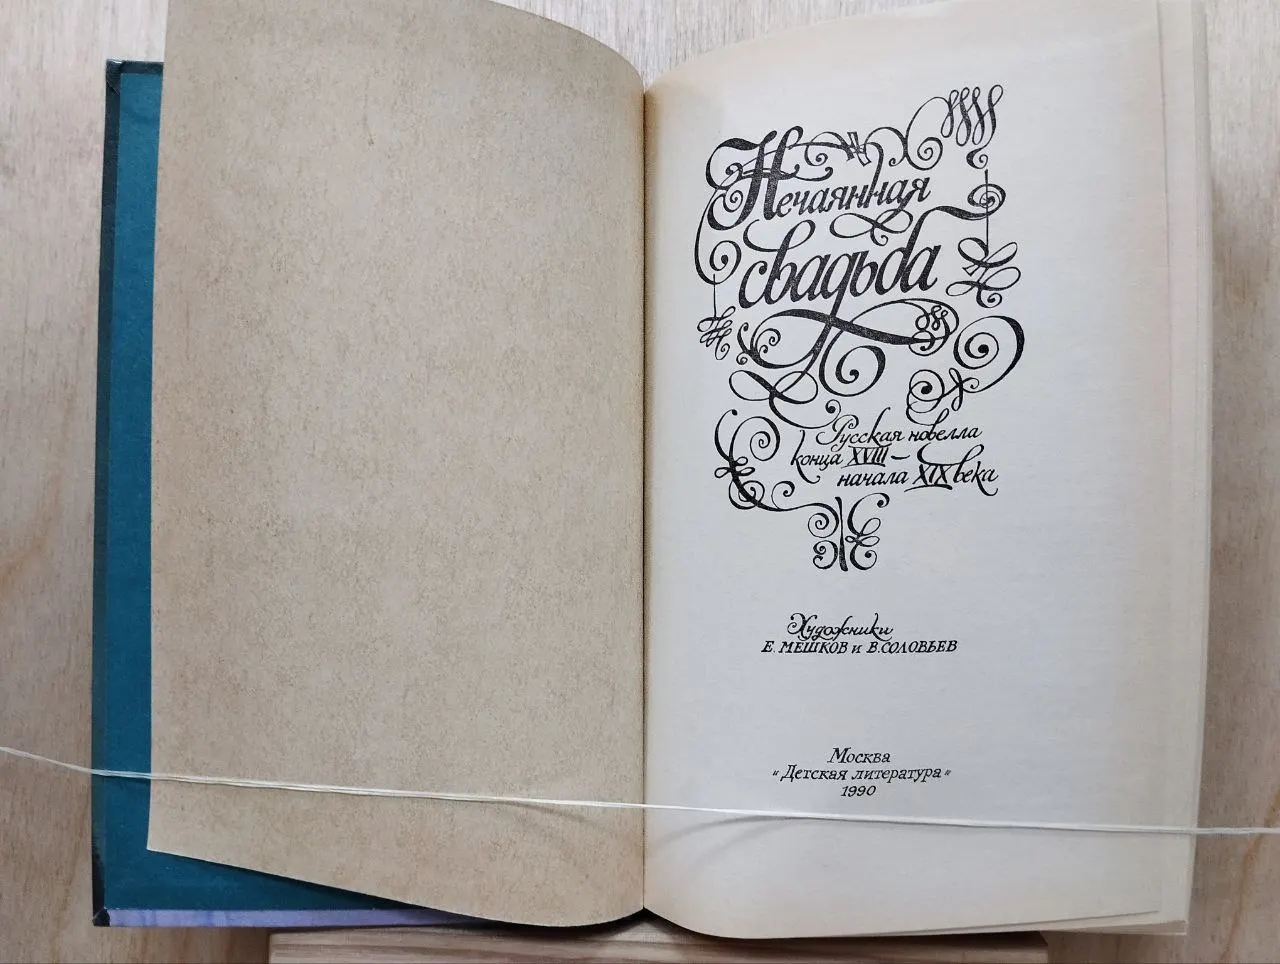 Нечаянная
свадьба
Русская новелла
конца XVIII –
начала XIX века
Художники
Е. МЕШКОВ и В. СОЛОВЬЕВ
Москва
"Детская литература"
1990